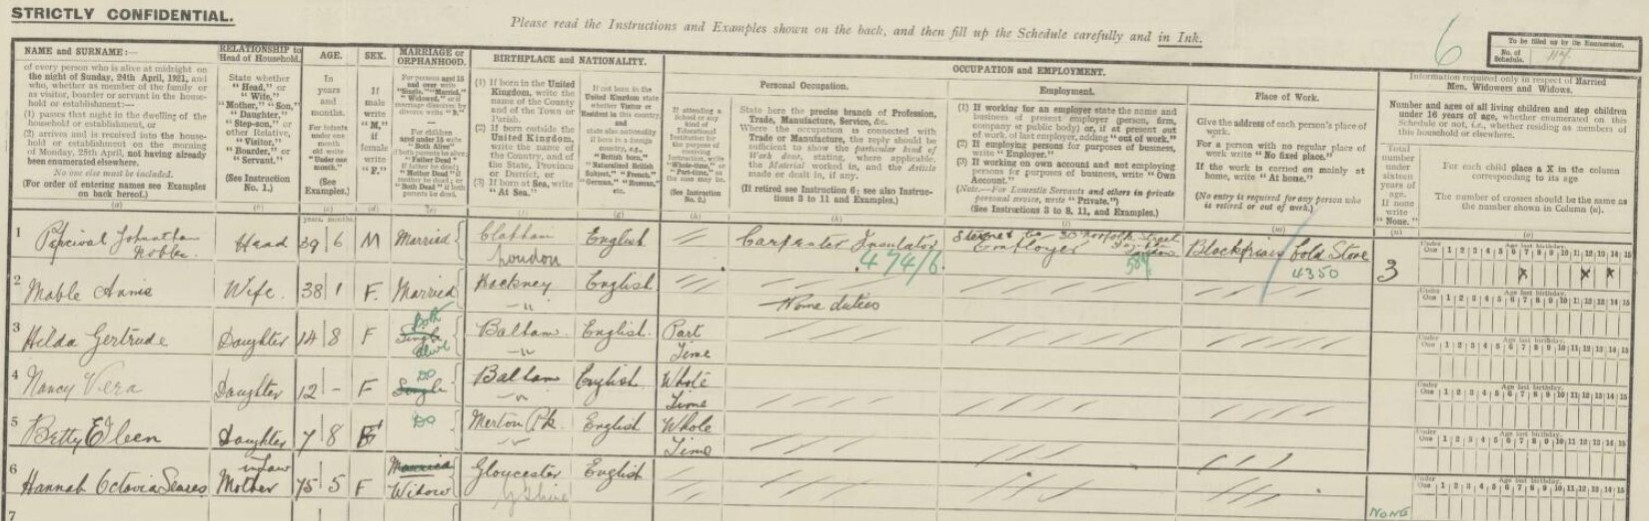 STRICTLY CONFIDENTIAL.
Please read the Instructions and Examples shown on the back, and then fill up the Schedule carefully and in Ink.
6
To be filled up by the Enumerator.
No. of
Schedule.
NAME and SURNAME:—
of every person who is alive at midright on
the night of Sunday, 24th April, 1921, and
who, whether as member of the family or
as visitor, boarder or servant in the house-
hold or establishment:—
(1) passes that night in the dwelling of the
household or establishment, or
(2) arrives and is received into the house-
hold or establishment on the morning
of Monday, 25th April, not having already
been enumerated elsewhere.
No one else must be included.
(For order of entering names see Examples
on back hereof.)
(a)
RELATIONSHIP to
Head of Household.
State whether
"Head," or
"Wife,"
"Mother," "Son,"
"Daughter,"
"Step-son," or
other Relative,
"Visitor,"
"Boarder," or
"Servant."
(See Instruction
No. 1.)
(b)
AGE.
In
years
and
months.
For infants
under one
month
old write
"Under one
month."
(See
Examples.)
(c)
years. months.
SEX.
If
male
write
"M,"
if
female
write
"F."
(d)
MARRIAGE or
ORPHANHOOD.
For persons aged 15
and over write
"Single," "Married,"
For children
under 15 write
"Both Alive"
"Father Dead"
"Mother Dead"
"Both Dead"
(e)
BIRTHPLACE and NATIONALITY.
(1) If born in the United
Kingdom, write the
name of the County
and of the Town or
Parish.
(2) If born outside the
United Kingdom,
write the name of
the Country, and of
the State, Province
or District, or
(3) If born at Sea, write
"At Sea."
(f)
If not born in the
United Kingdom state
whether Visitor or
Resident in this country,
and
state also nationality
(g)
OCCUPATION and EMPLOYMENT.
If attending a
School or any
(See Instruction
No. 2.)
(h)
Personal Occupation.
State here the precise branch of Profession,
Trade, Manufacture, Service, &c.
Where the occupation is connected with
Trade or Manufacture, the reply should be
sufficient to show the particular kind of
Work done, stating, where applicable,
the Material worked in, and the Article
made or dealt in, if any.
(If retired see Instruction 6; see also Instruc-
tions 3 to 11 and Examples.)
(k)
Employment.
(1) If working for an employer state the name and
business of present employer (person, firm,
company or public body) or, if at present out
of work, of last employer, adding "out of work."
(2) If employing persons for purposes of business,
write "Employer."
(3) If working on own account and not employing
persons for purposes of business, write "Own
Account."
(Note.—For Domestic Servants and others in private
personal service, write "Private.")
(See Instructions 3 to 8, 11, and Examples.)
(l)
Place of Work.
Give the address of each person's place of
work.
For a person with no regular place of
work write "No fixed place."
If the work is carried on mainly at
home, write "At home."
(No entry is required for any person who
is retired or out of work.)
(m)
Information required only in respect of Married
Men, Widowers and Widows.
Number and ages of all living children and step children
under 16 years of age, whether enumerated on this
Schedule or not, i.e., whether residing as members of
this household or elsewhere.
Total
number
under
sixteen
years
of
age.
If none
write
"None."
(n)
For each child place a X in the column
corresponding to its age
The number of crosses should be the same as
the number shown in Column (n).
(o)
1 Percival Johnathan Nobles Head 39 6 M Married Clapham London English Carpenter Insulator 474/6 Employer Blackfriars Cold Store 4350 3
Under One Age last birthday. 1 2 3 4 5 6 7 8 9 10 11 12 13 14 15
x x x
2 Mable Annie Wife. 38 1 F. Married Hackney " English Home duties
Under One Age last birthday. 1 2 3 4 5 6 7 8 9 10 11 12 13 14 15
3 Hilda Gertrude Daughter 14 8 F Single Both alive Balham " English. Part Time
Under One Age last birthday. 1 2 3 4 5 6 7 8 9 10 11 12 13 14 15
4 Nancy Vera Daughter 12 - F Single DO Balham " English Whole Time
Under One Age last birthday. 1 2 3 4 5 6 7 8 9 10 11 12 13 14 15
5 Betty Eileen Daughter 7 8 F DO Merton Pk. " English Whole Time
Under One Age last birthday. 1 2 3 4 5 6 7 8 9 10 11 12 13 14 15
6 Hannah Octavia Mother in Law 75 5 F Married Widow Gloucester English NONE
Under One Age last birthday. 1 2 3 4 5 6 7 8 9 10 11 12 13 14 15
7